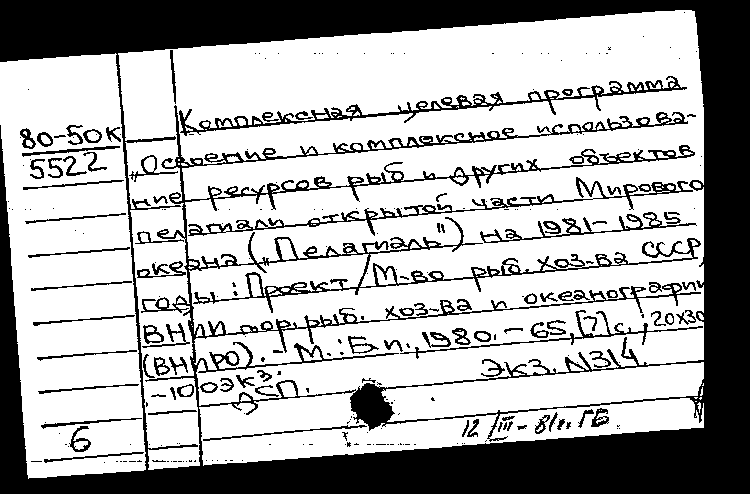 Комплексная целевая программа
80-50К
5522
„Освоение и комплексное использова-
ние ресурсов рыб и других объектов
пелагиали открытой части Мирового
океана („Пелагиаль") на 1981-1985
годы: Проект/М-во рыб. хоз-ва СССР,
ВНИИ мор. рыб. хоз-ва и океанографии
(ВНИРО). - М.: Б.и., 1980. - 65, [7] с.; 20х30
-100экз. Экз. N314.
ДСП.
6
12/III-81г. ГБ